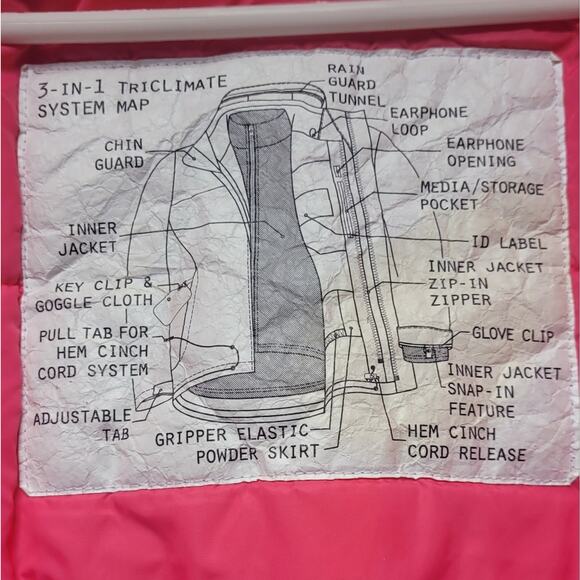 3-IN-1 TRICLIMATE
SYSTEM MAP
RAIN
GUARD
TUNNEL
EARPHONE
LOOP
CHIN
GUARD
EARPHONE
OPENING
MEDIA/STORAGE
POCKET
INNER
JACKET
ID LABEL
KEY CLIP &
GOGGLE CLOTH
INNER JACKET
ZIP-IN
ZIPPER
PULL TAB FOR
HEM CINCH
CORD SYSTEM
GLOVE CLIP
INNER JACKET
SNAP-IN
FEATURE
ADJUSTABLE
TAB
GRIPPER ELASTIC
POWDER SKIRT
HEM CINCH
CORD RELEASE